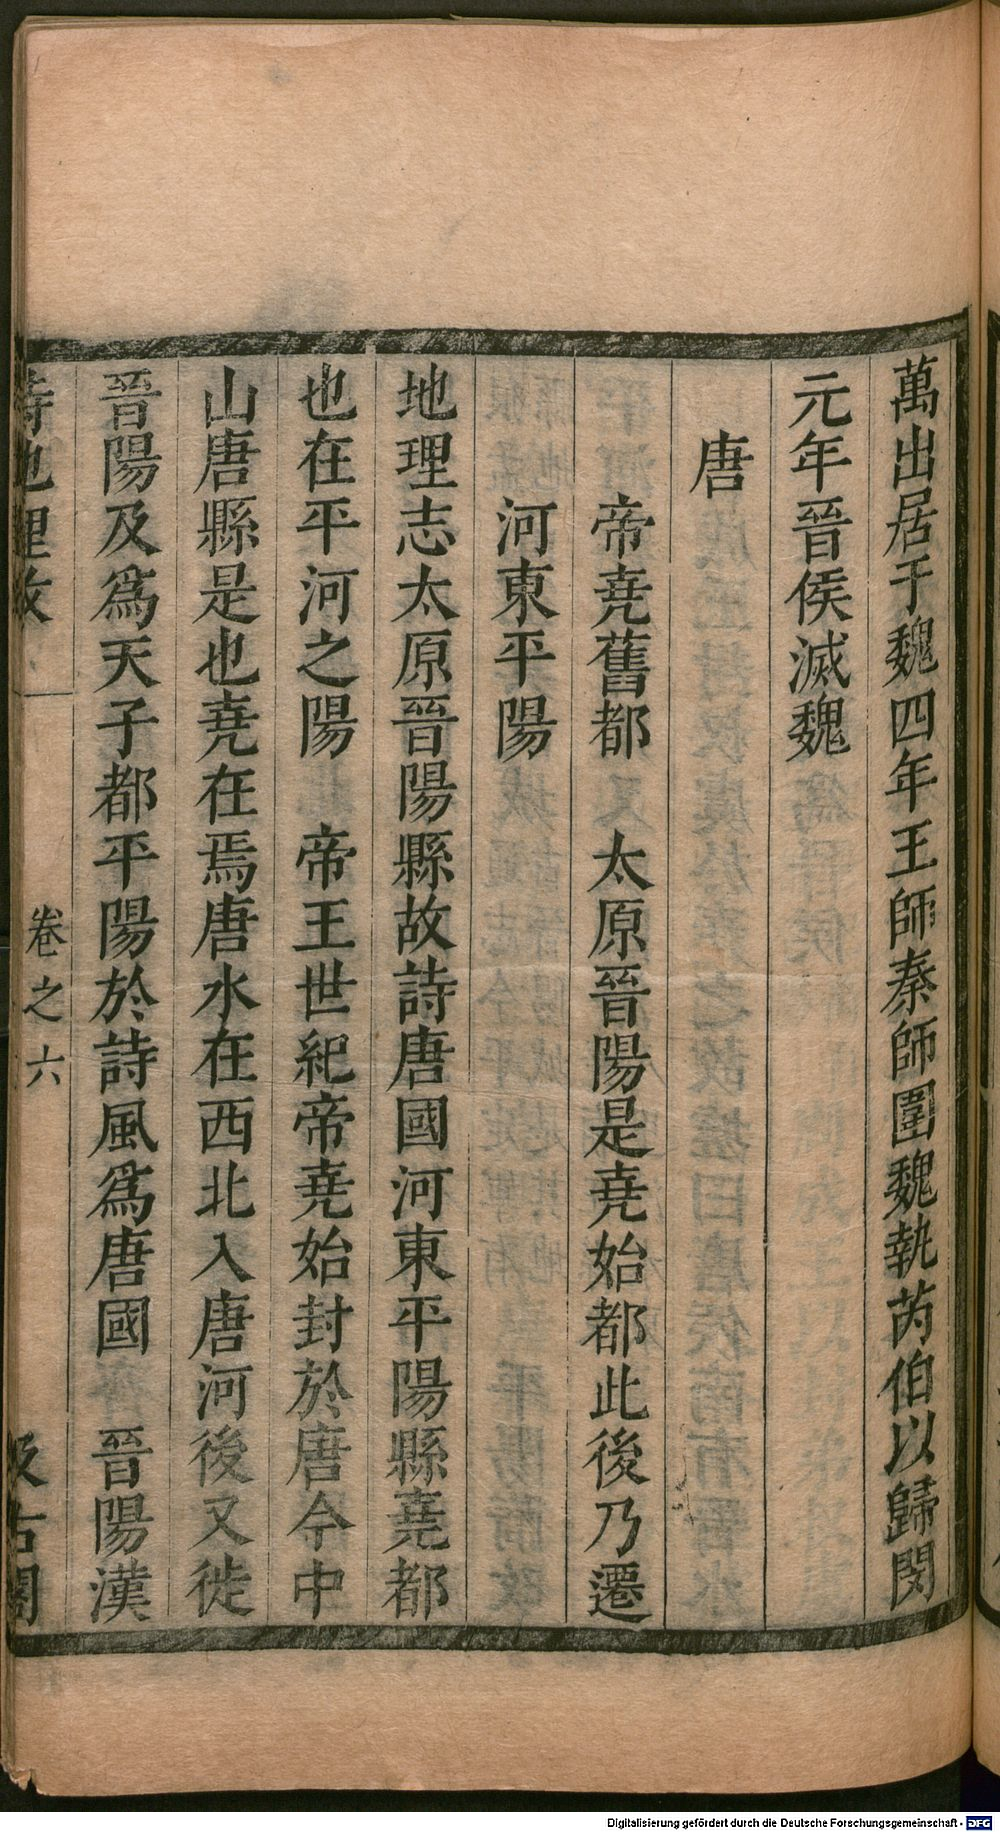 萬出居于魏四年王師秦師圍魏執芮伯以歸閔
元年晉侯滅魏
唐
帝堯舊都　太原晉陽是堯始都此後乃遷
河東平陽
地理志太原晉陽縣故詩唐國河東平陽縣堯都
也在平河之陽　帝王世紀帝堯始封於唐今中
山唐縣是也堯在焉唐水在西北入唐河後又徙
晉陽及爲天子都平陽於詩風爲唐國　晉陽漢
詩地理攷
卷之六
汲古閣
Digitalisierung gefördert durch die Deutsche Forschungsgemeinschaft - DFG